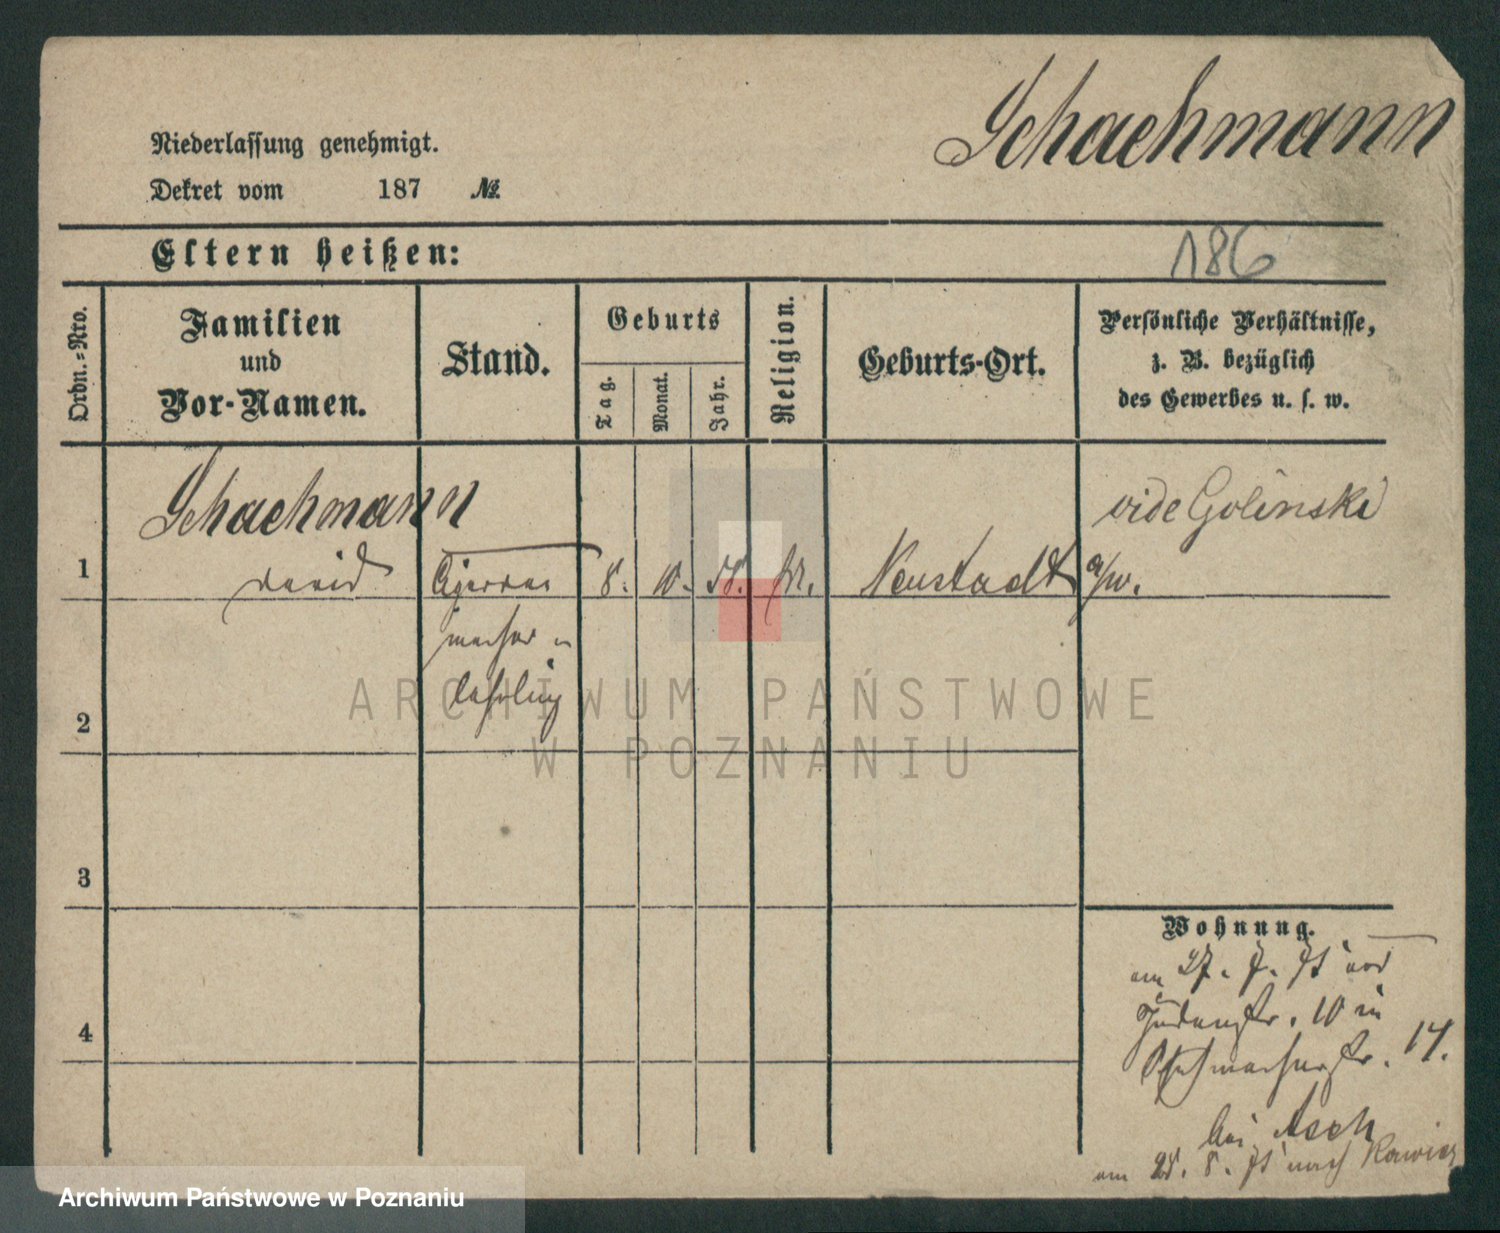 Schachmann
Niederlassung genehmigt.
Dekret vom 187 №.
Eltern heißen:
186
Ordn.=Nro.
Familien
und
Vor-Namen.
Stand.
Geburts
Tag.
Monat.
Jahr.
Religion.
Geburts-Ort.
Persönliche Verhältnisse,
z. B. bezüglich
des Gewerbes u. s. w.
Schachmann
vide Golinski
1 David Cigarren 8. 10. 58. Neustadt a/w.
macher
lehrling
2
3
4
Wohnung.
am 27. 7. von
Judenstr. 10 in
Schuhmacherstr. 17.
bei Asch
am 28. 8. nach Rawicz
ARCHIWUM PAŃSTWOWE
W POZNANIU
Archiwum Państwowe w Poznaniu